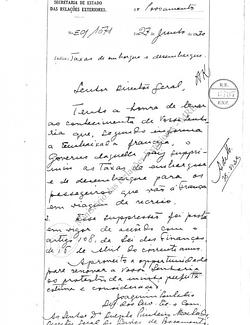 SECRETARIA DE ESTADO
DAS RELAÇÕES EXTERIORES
Povoamento
Taxas de embarque e desembarque.
Senhor Director Geral,
Tenho a honra de levar
ao conhecimento de Vossa Senho-
ria que, segundo informa
a Embaixada francesa, o
Governo daquelle paiz suppri-
miu as taxas de embarque
e de desembarque para os
passageiros que vão á França
em viagem de recreio.
2. Essa suppressão foi posta
em vigor de accôrdo com o
artigo 108, da Lei das Finanças
de 16 de Abril do corrente anno.
Aproveito a opportunidade
para renovar a Vossa Senhoria
os protestos da minha perfeita
estima e consideração.
Joaquim Eulalio